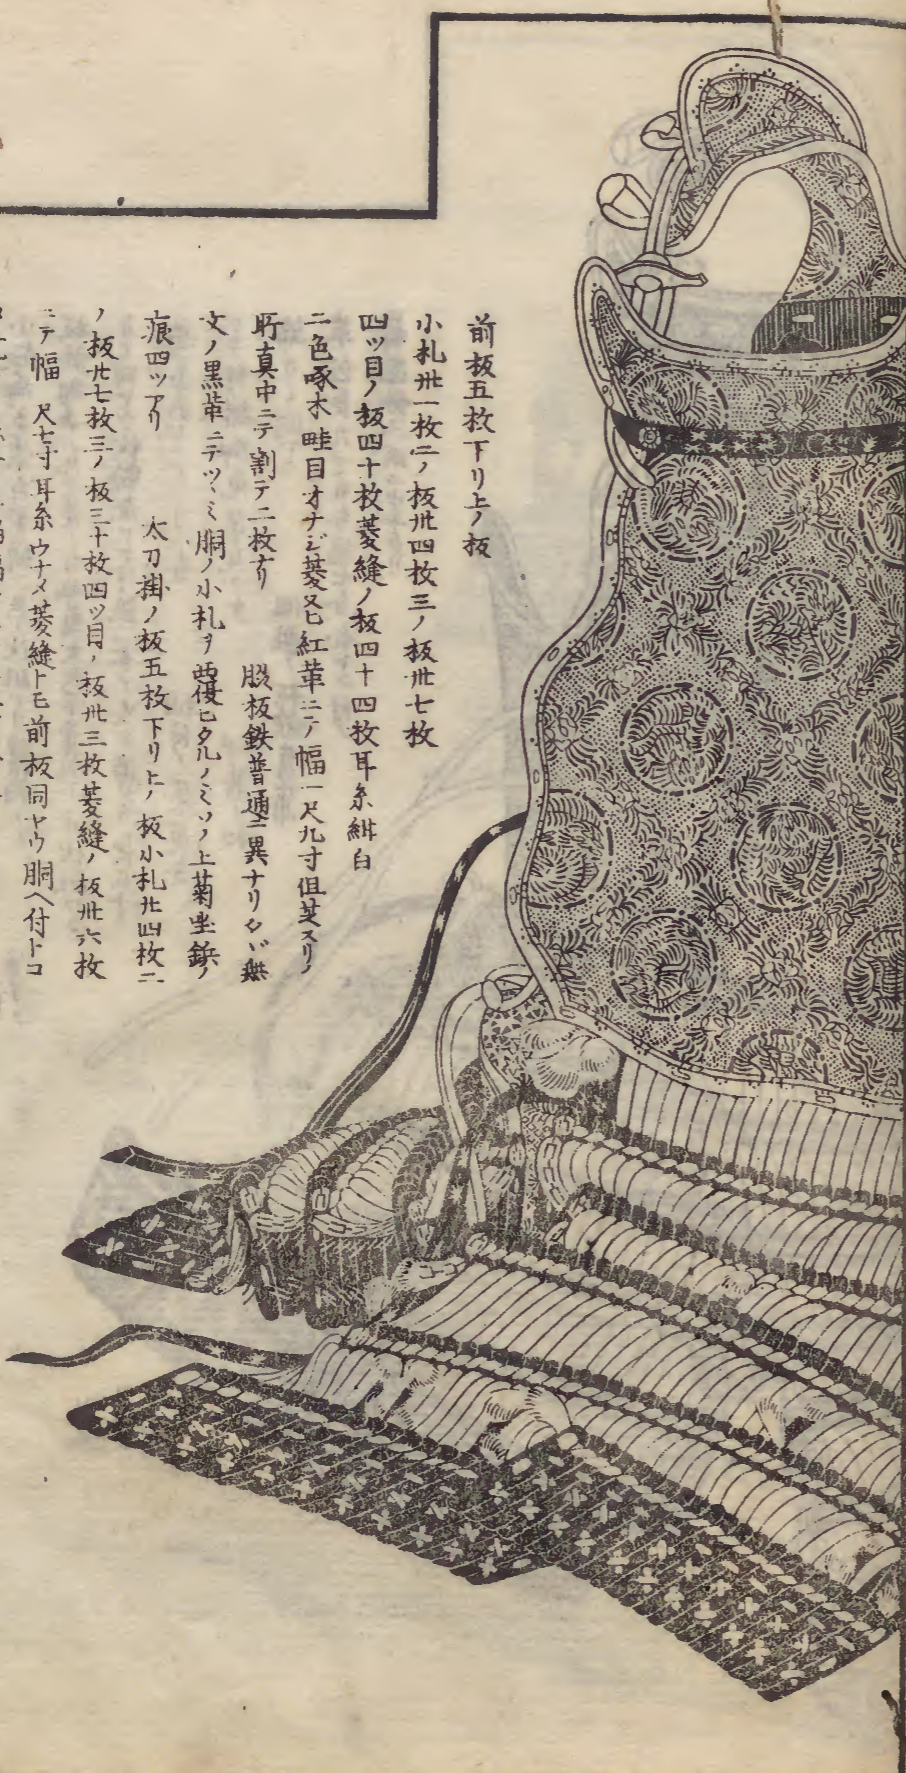 前板五枚下リ上ノ板
小札卅一枚二ノ板卅四枚三ノ板卅七枚
四ツ目ノ板四十枚菱縫ノ板四十四枚耳糸紺白
二色啄木畦目オナジ菱又ヒ紅革ニテ幅一尺九寸但芝スリノ
所真中ニテ割テ二枚有 脇板鉄普通ニ異ナリ
文ノ黒革ニテツヽミ胴ノ小札ヲ ヒタルノミソノ上菊坐鋲ノ
痕四ツアリ 太刀掛ノ板五枚下リ上ノ板小札廿四枚二
ノ板廿七枚三ノ板三十枚四ツ目ノ板卅三枚菱縫ノ板卅六枚
ニテ幅 尺七寸耳糸ウナメ菱縫トモ前板同ヤウ胴ヘ付トコ